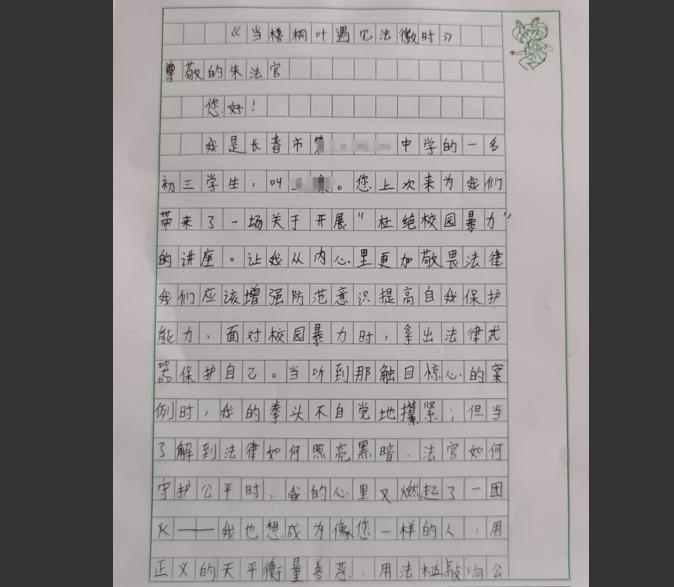 《当梧桐叶遇见法徽时》
尊敬的朱法官
您好！
我是长春市第 中学的一名
初三学生，叫 。您上次来为我们
带来了一场关于开展“杜绝校园暴力”
的讲座。让我从内心里更加敬畏法律
我们应该增强防范意识提高自我保护
能力，面对校园暴力时，拿出法律武
器保护自己。当听到那触目惊心的案
例时，我的拳头不自觉地攥紧；但当
了解到法律如何照亮黑暗、法官如何
守护公平时，我的心里又燃起了一团
火——我也想成为像您一样的人，用
正义的天平衡量善恶，用法槌敲响公